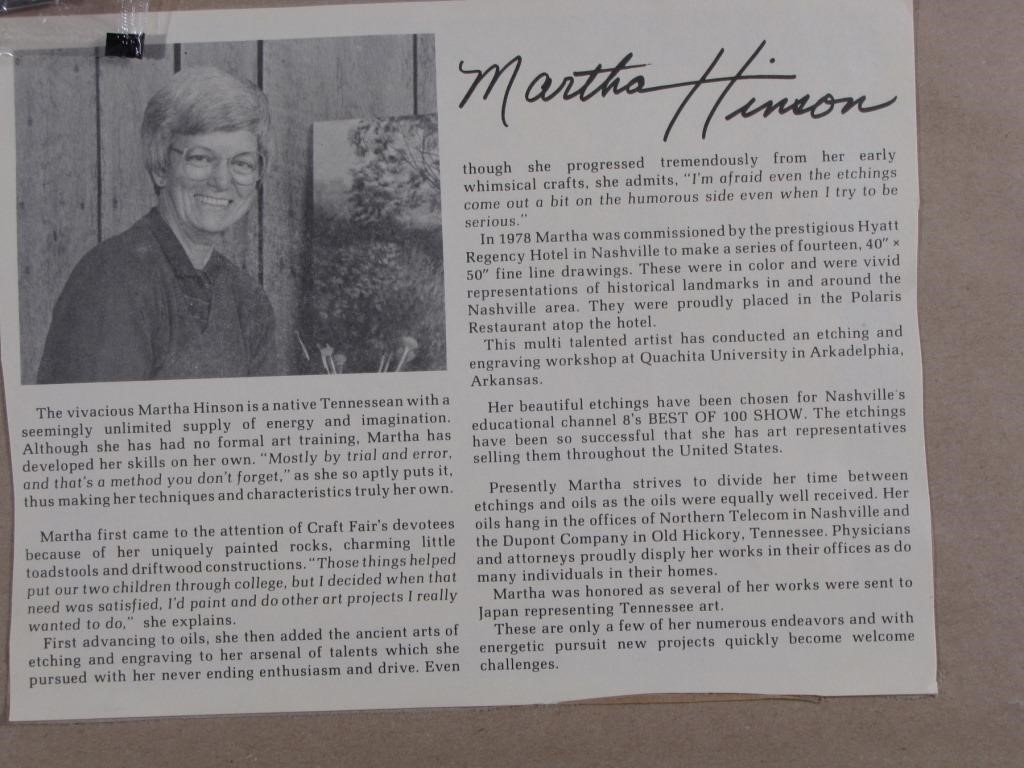 Martha Hinson
The vivacious Martha Hinson is a native Tennessean with a
seemingly unlimited supply of energy and imagination.
Although she has had no formal art training, Martha has
developed her skills on her own. "Mostly by trial and error,
and that's a method you don't forget," as she so aptly puts it,
thus making her techniques and characteristics truly her own.
Martha first came to the attention of Craft Fair's devotees
because of her uniquely painted rocks, charming little
toadstools and driftwood constructions. "Those things helped
put our two children through college, but I decided when that
need was satisfied, I'd paint and do other art projects I really
wanted to do," she explains.
First advancing to oils, she then added the ancient arts of
etching and engraving to her arsenal of talents which she
pursued with her never ending enthusiasm and drive. Even
though she progressed tremendously from her early
whimsical crafts, she admits, "I'm afraid even the etchings
come out a bit on the humorous side even when I try to be
serious."
In 1978 Martha was commissioned by the prestigious Hyatt
Regency Hotel in Nashville to make a series of fourteen, 40" ×
50" fine line drawings. These were in color and were vivid
representations of historical landmarks in and around the
Nashville area. They were proudly placed in the Polaris
Restaurant atop the hotel.
This multi talented artist has conducted an etching and
engraving workshop at Quachita University in Arkadelphia,
Arkansas.
Her beautiful etchings have been chosen for Nashville's
educational channel 8's BEST OF 100 SHOW. The etchings
have been so successful that she has art representatives
selling them throughout the United States.
Presently Martha strives to divide her time between
etchings and oils as the oils were equally well received. Her
oils hang in the offices of Northern Telecom in Nashville and
the Dupont Company in Old Hickory, Tennessee. Physicians
and attorneys proudly disply her works in their offices as do
many individuals in their homes.
Martha was honored as several of her works were sent to
Japan representing Tennessee art.
These are only a few of her numerous endeavors and with
energetic pursuit new projects quickly become welcome
challenges.